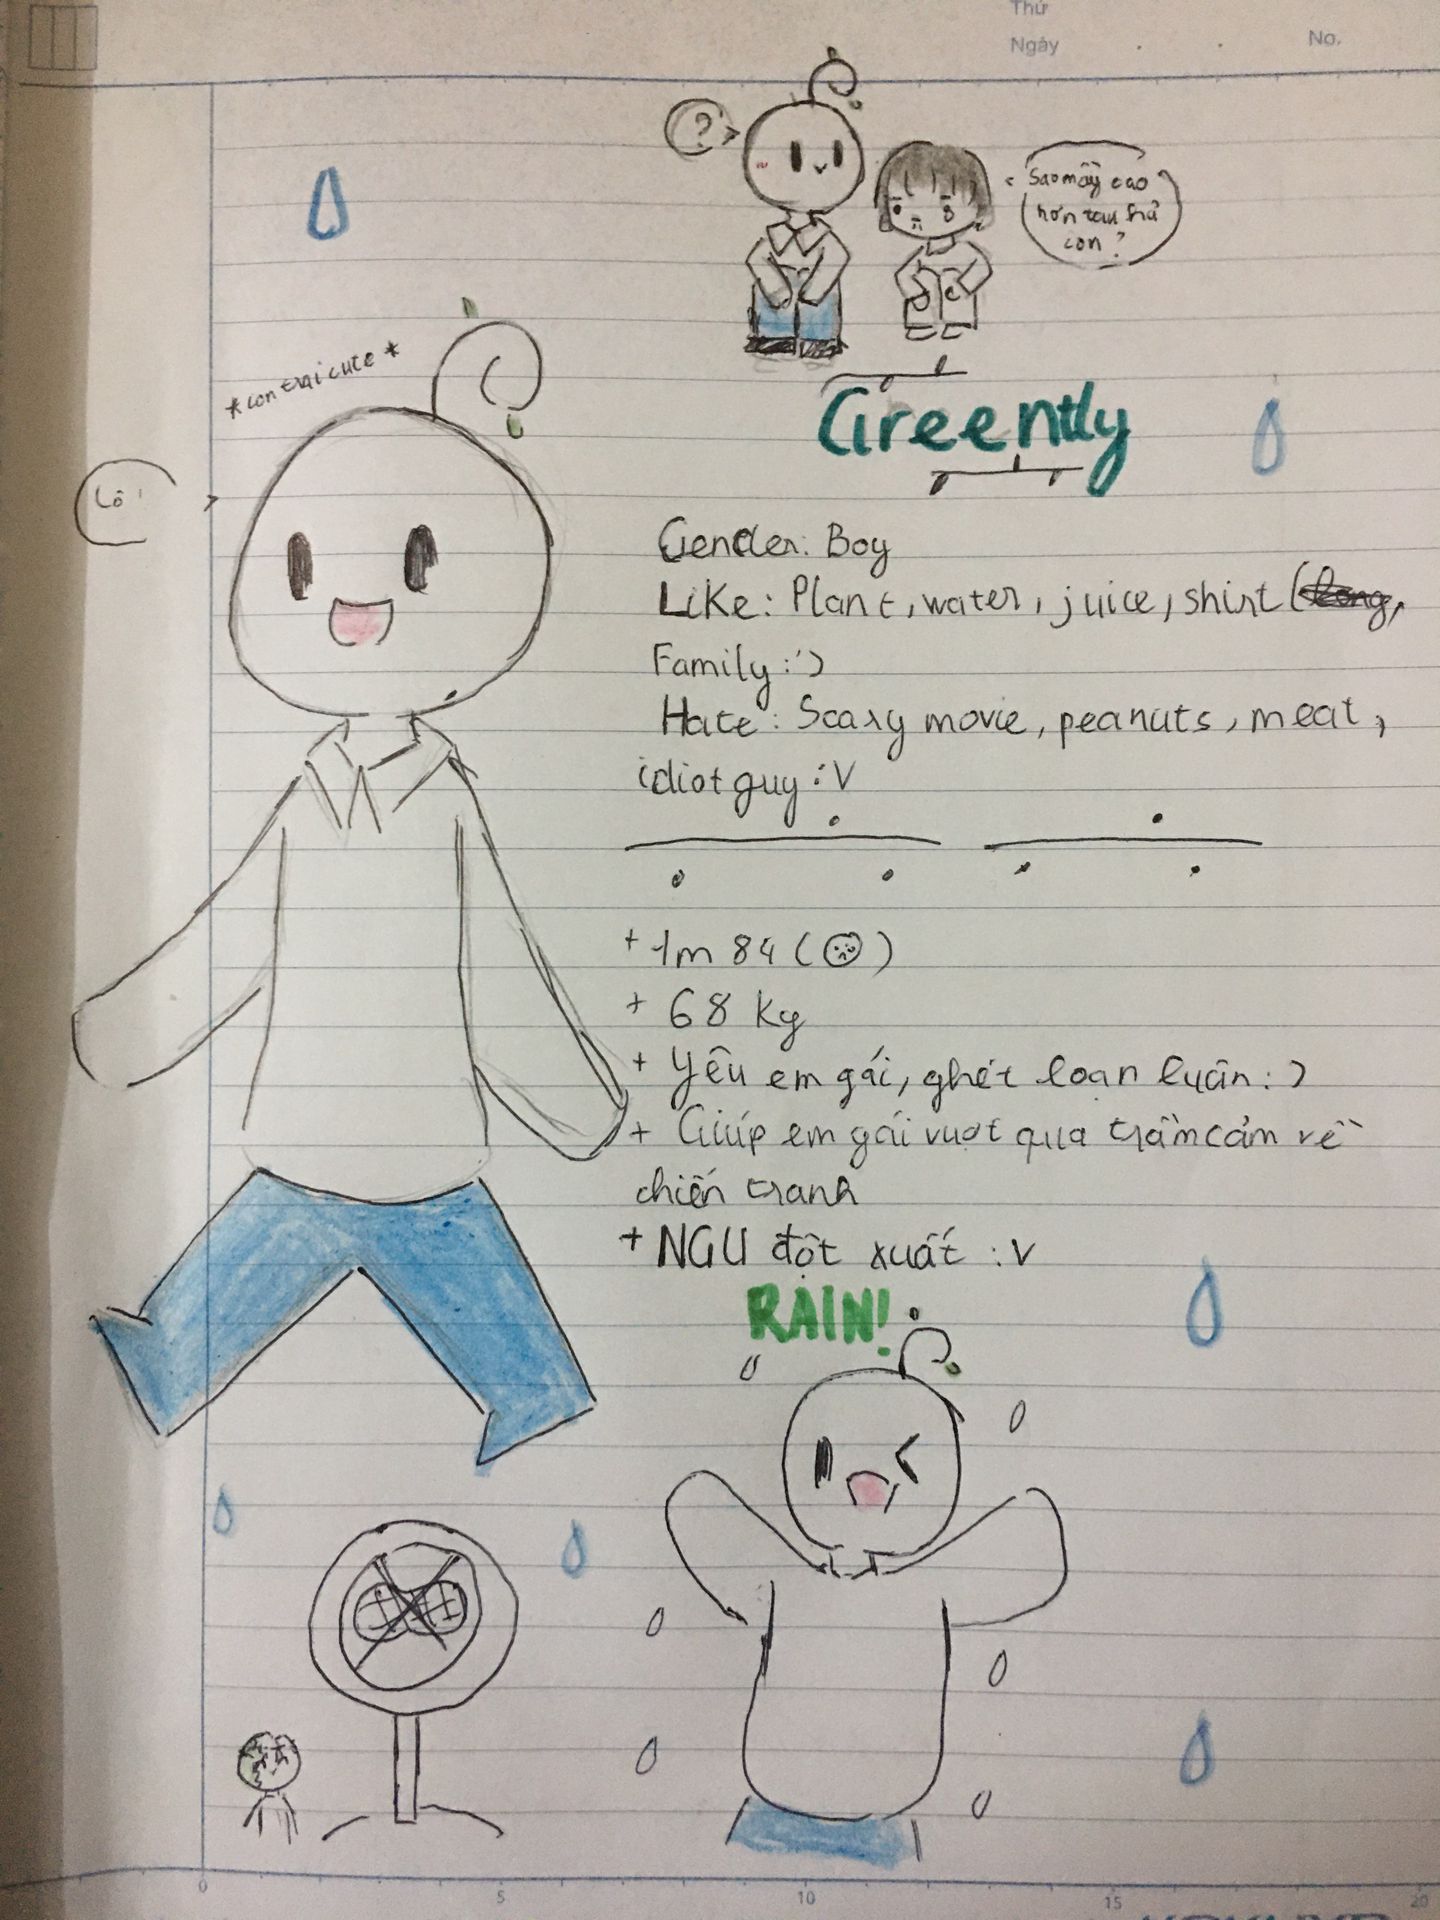 Thứ
Ngày
No.
?
Sao mày cao
hơn tau hả
con ?
*con trai cute*
Greently
Lô
Gender: Boy
Like: Plant, water, juice, shirt (long,
Family :')
Hate: Scary movie, peanuts, meat,
idiot guy :V
+ 1m 84 (
)
+ 68 kg
+ Yêu em gái, ghét loạn luân :)
+ Giúp em gái vượt qua trầm cảm về
chiến tranh
+ NGU đột xuất :V
RAIN!
0 5 10 15 20